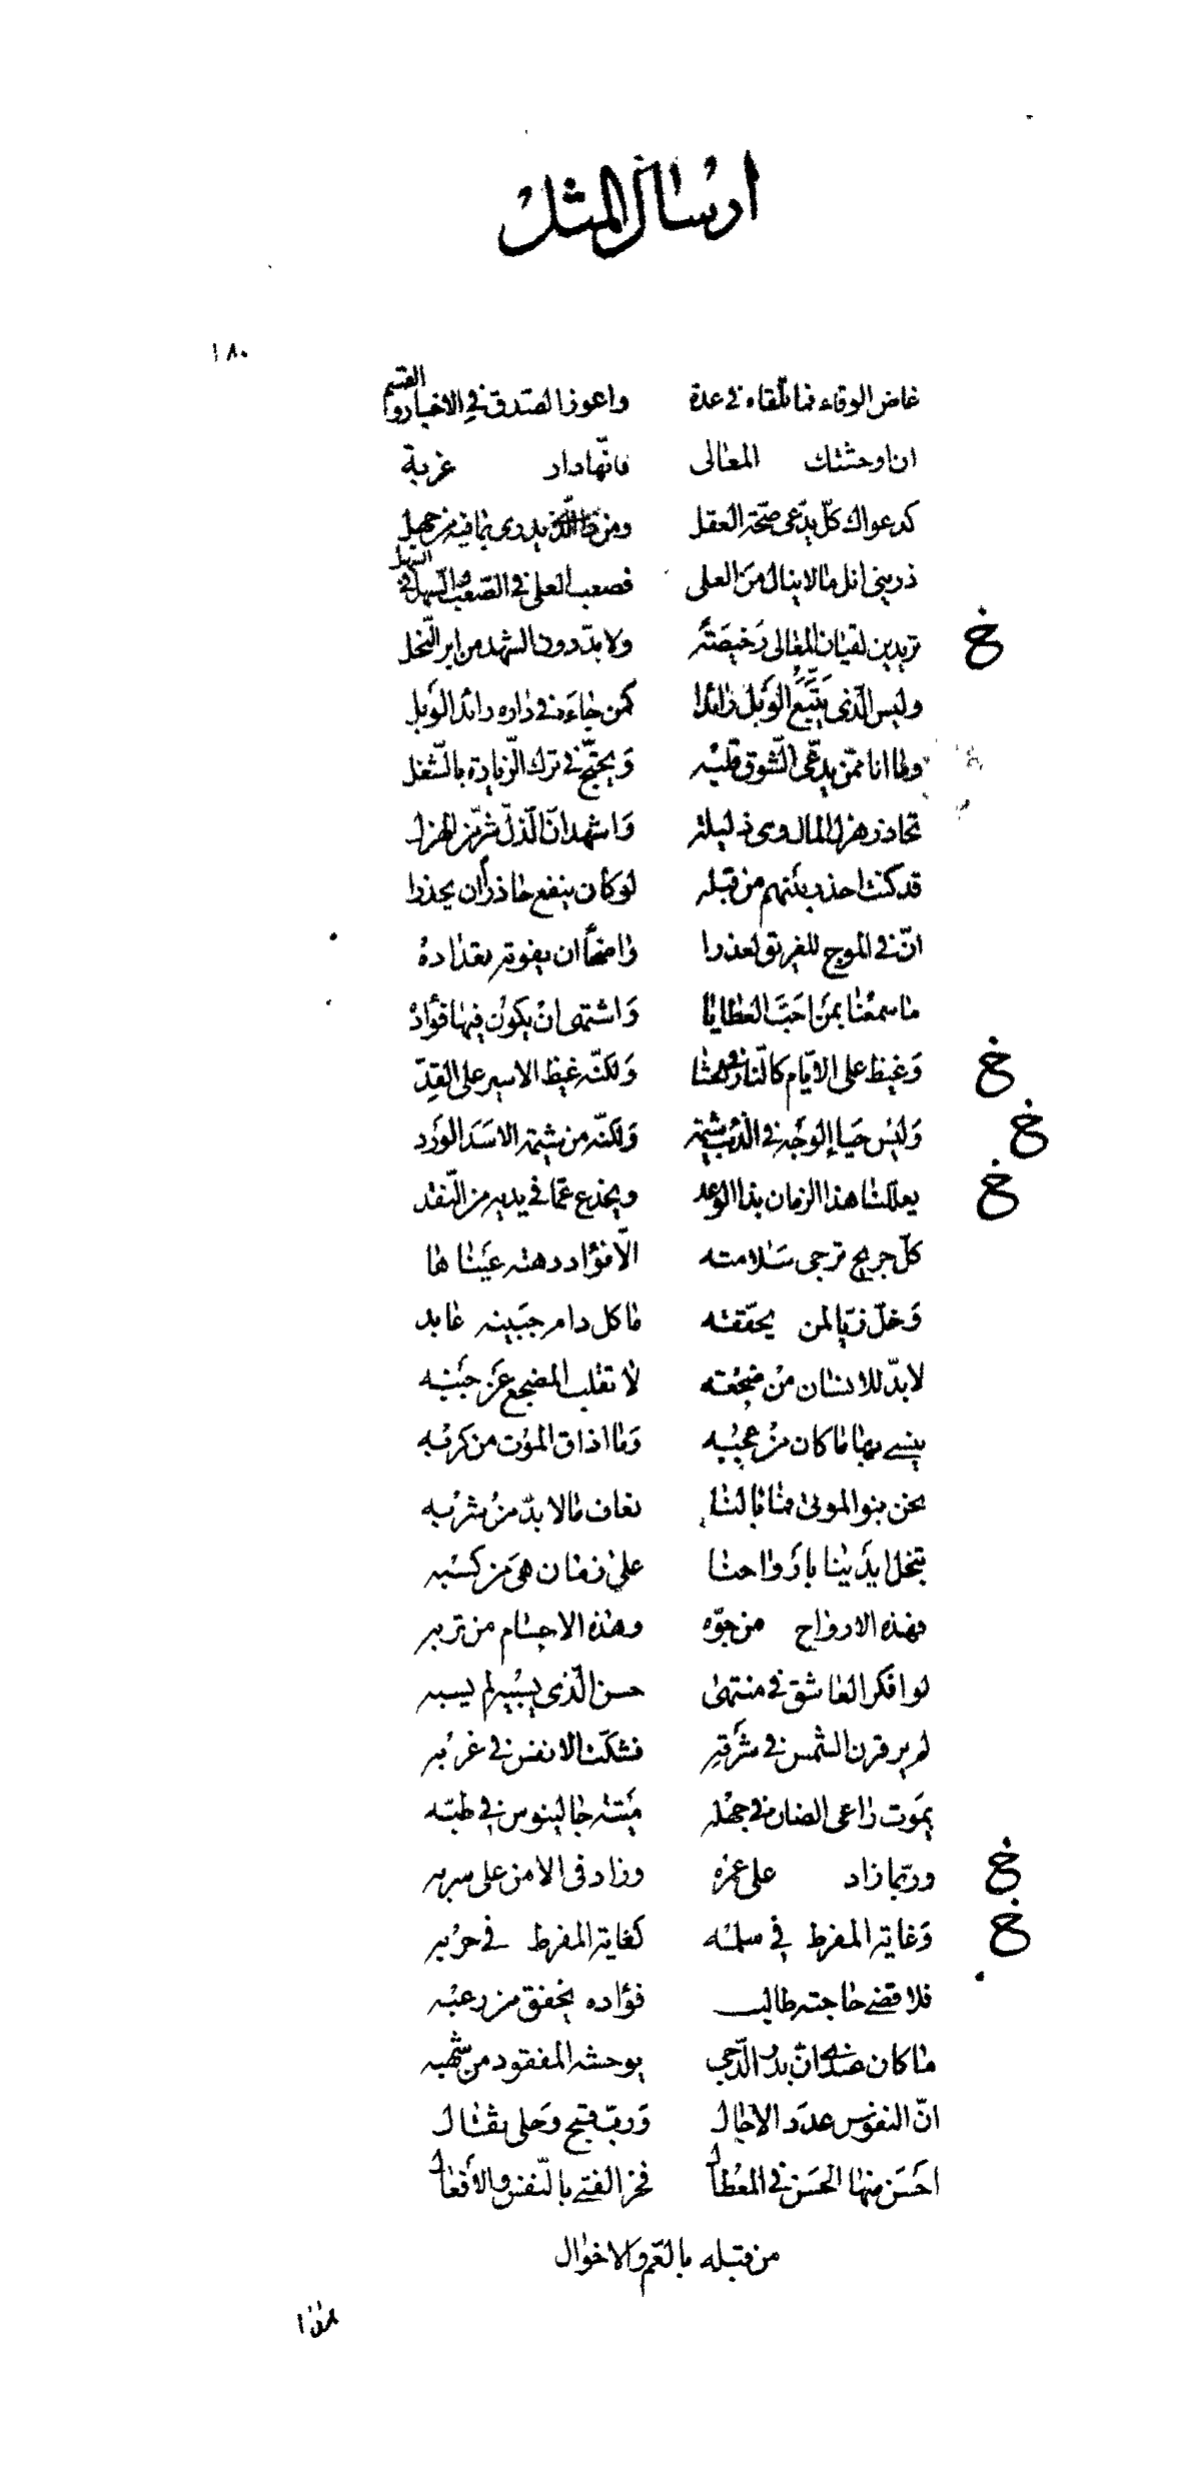 ارسال المثل
١٨٠
غاض الوفاء فما تلقاه في عدة واعوز الصدق في الاخبار والقسم
ان اوحشتك المعالى فانها دار غربة
كدعواك كلّ يدّعى صحّة العقل ومن ذا الّذى يدرى بما فيه من جهل
ذرينى انل ما لا ينال من العلى فصعب العلى في الصّعب والسّهل في السّهل
تريدين لقيان المعالى رخيصة ولا بدّ دون الشهد من ابر النّحل
وليس الّذى يتّبّع الوبل رائدا كمن جاءه في داره رائد الوبل
وما انا ممّن يدّعى الشّوق قلبه ويحتجّ في ترك الزّيارة بالشّغل
تحاذر هزل المال وهى ذليلة واشهد انّ الذلّ شرّ من الهزل
قد كنت احذر بينهم من قبله لو كان ينفع حاذرا ان يحذرا
انّ في الموج للغريق لعذرا واضحا ان يفوته تعداده
ما سمعنا بمن احبّ العطايا واشتهى ان يكون فيها فؤاده
وغيظ على الايّام كالنّار في الحشا ولكنّه غيظ الاسير على القدّ
وليس حياء الوجه في الذئب شيمة ولكنّه من شيمة الاسد الورد
يعللنا هذا الزمان بذا الوعد ويخدع عمّا في يديه من النّقد
كلّ جريح ترجى سلامته الّا فؤاد دهته عيناها
وخلّ زيّا لمن يحقّقه ما كل دام جبينه عابد
لا بدّ للانسان من ضجعة لا تقلب المضجع عن جنبه
ينسى بها ما كان من عجبه وما اذاق الموت من كربه
نحن بنو الموتى فما بالنا نعاف ما لا بدّ من شربه
تبخل ايدينا بارواحنا على زمان هى من كسبه
فهذه الارواح من جوّه وهذه الاجسام من تربه
لو افكر العاشق في منتهى حسن الّذى يسبيه لم يسبه
لم ير قرن الشمس في شرقه فشكّت الانفس في غربه
يموت راعى الضان في جهله ميتة جالينوس في طبّه
وربّما زاد على عمره وزاد في الامن على سربه
وغاية المفرط في سلمه كغاية المفرط في حربه
فلا قضى حاجته طالب فؤاده يخفق من رعبه
ما كان عندى انّ بدر الدّجى يوحشه المفقود من شهبه
انّ النفوس عدد الاجال وربّ قبح وحلى ثقال
احسن منها الحسن في المعطال فخر الفتى بالنّفس والافعال
من قبله بالعّم والاخوال